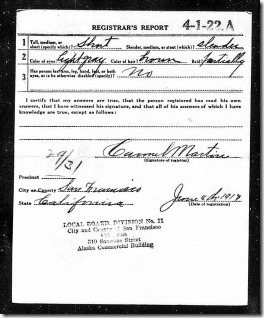 REGISTRAR'S REPORT 4-1-22.A
1 Tall, medium, or short (specify which)? Short Slender, medium, or stout (which)? Slender
2 Color of eyes? Light gray Color of hair? Brown Bald? Partially
3 Has person lost arm, leg, hand, foot, or both eyes, or is he otherwise disabled (specify)? No
I certify that my answers are true, that the person registered has read his own answers, that I have witnessed his signature, and that all of his answers of which I have knowledge are true, except as follows:
29/31
(Signature of registrar)
Precinct
City or County San Francisco
State California
June 5th 1917
(Date of registration)
LOCAL BOARD, DIVISION No. 11
City and County of San Francisco
310 Sansome Street
Alaska Commercial Building